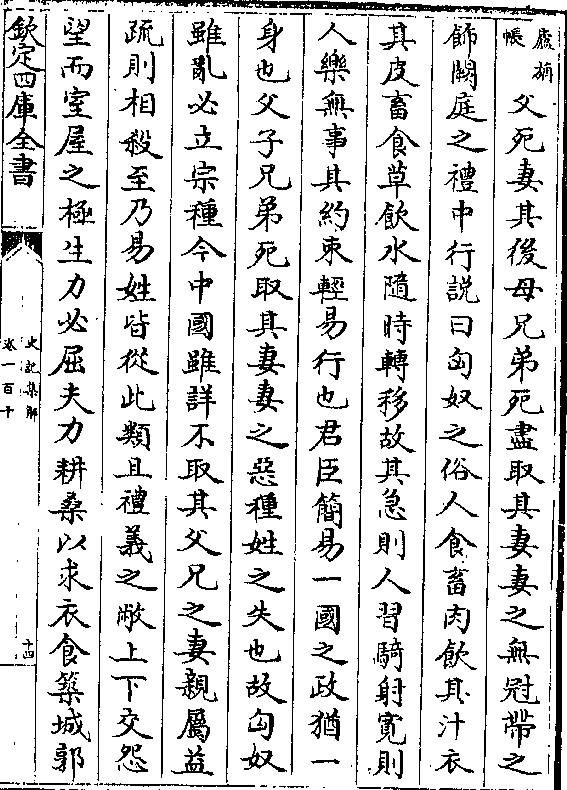 廬旃
帳
父死妻其後母兄弟死盡取其妻妻之無冠帶之
飾闕庭之禮中行説曰匈奴之俗人食畜肉飲其汁衣
其皮畜食草飲水隨時轉移故其急則人習騎射寛則
人樂無事其約束輕易行也君臣簡易一國之政猶一
身也父子兄弟死取其妻妻之惡種姓之失也故匈奴
雖亂必立宗種今中國雖詳不取其父兄之妻親屬益
疏則相殺至乃易姓皆從此類且禮義之敝上下交怨
望而室屋之極生力必屈夫力耕桑以求衣食築城郭
欽定四庫全書
史記集解
卷一百十
十四